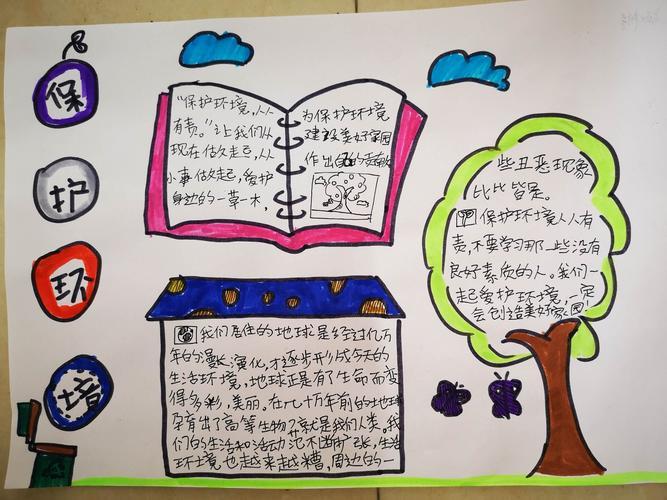 保
护
环
境
"保护环境，人人
有责。"让我们从
现在做起，从
小事做起，爱护
身边的一草一木，
为保护环境
建设美好家园
作出自己的贡献
我们居住的地球是经过亿万
年的漫长演化，才逐步形成今天的
生活环境，地球正是有了生命而变
得多彩，美丽。在几十万年前的地球
孕育出了高等生物，就是我们人类。我
们的生活和活动范不断扩张，生活
环境也越来越糟，周边的一
些丑恶现象
比比皆是。
保护环境人人有
责，不要学习那一些没有
良好素质的人。我们一
起爱护环境，一定
会创造美好家园。